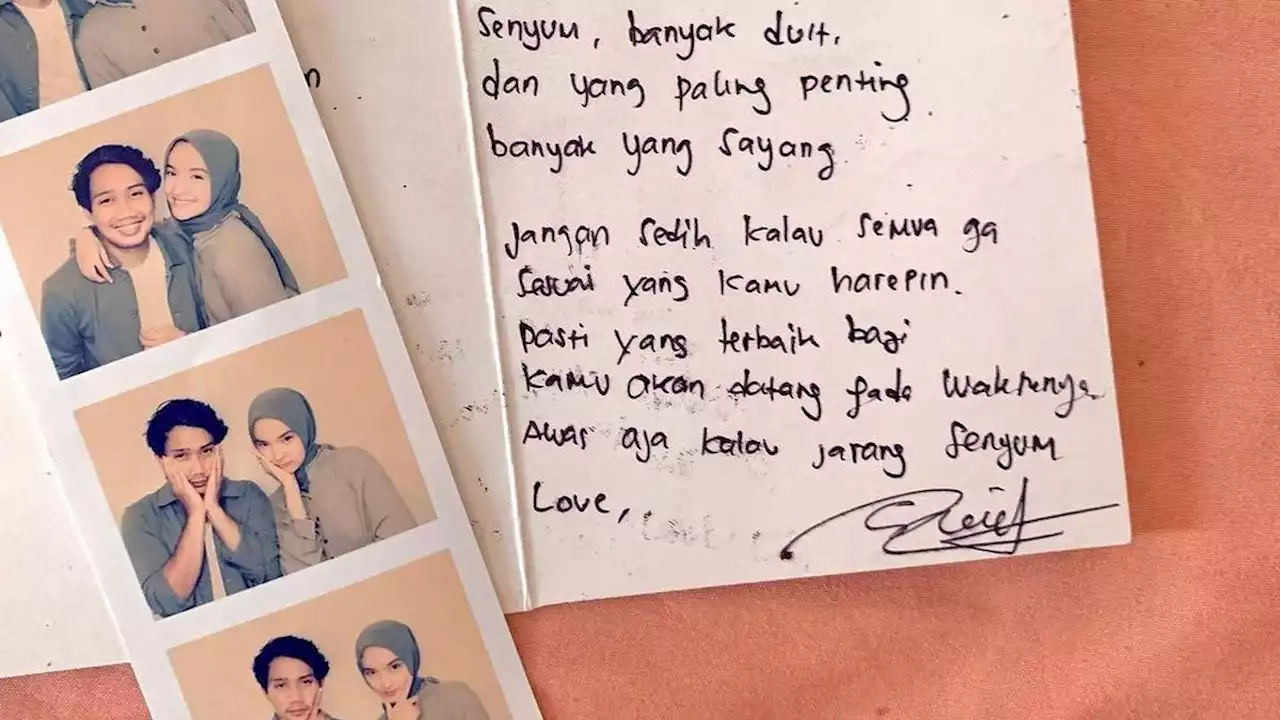 n
Senyum, banyak duit,
dan yang paling penting
banyak yang sayang
Jangan sedih kalau semua ga
sesuai yang kamu harepin.
pasti yang terbaik bagi
kamu akan datang pada waktunya
Awas aja kalau jarang senyum
Love,
disway.id